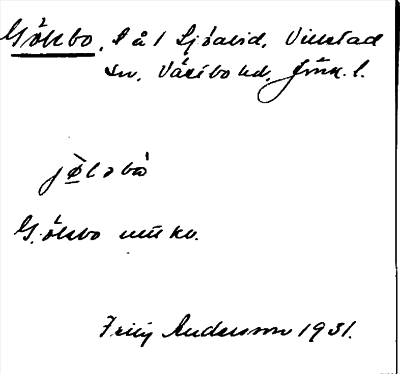 Göksbo, l å 1 Sjöarid, Villstad
sn. Västbo hd. Jönk. l.
jø̀lsbò
Göksbo mü kv.
Fritz Andersson 1931.